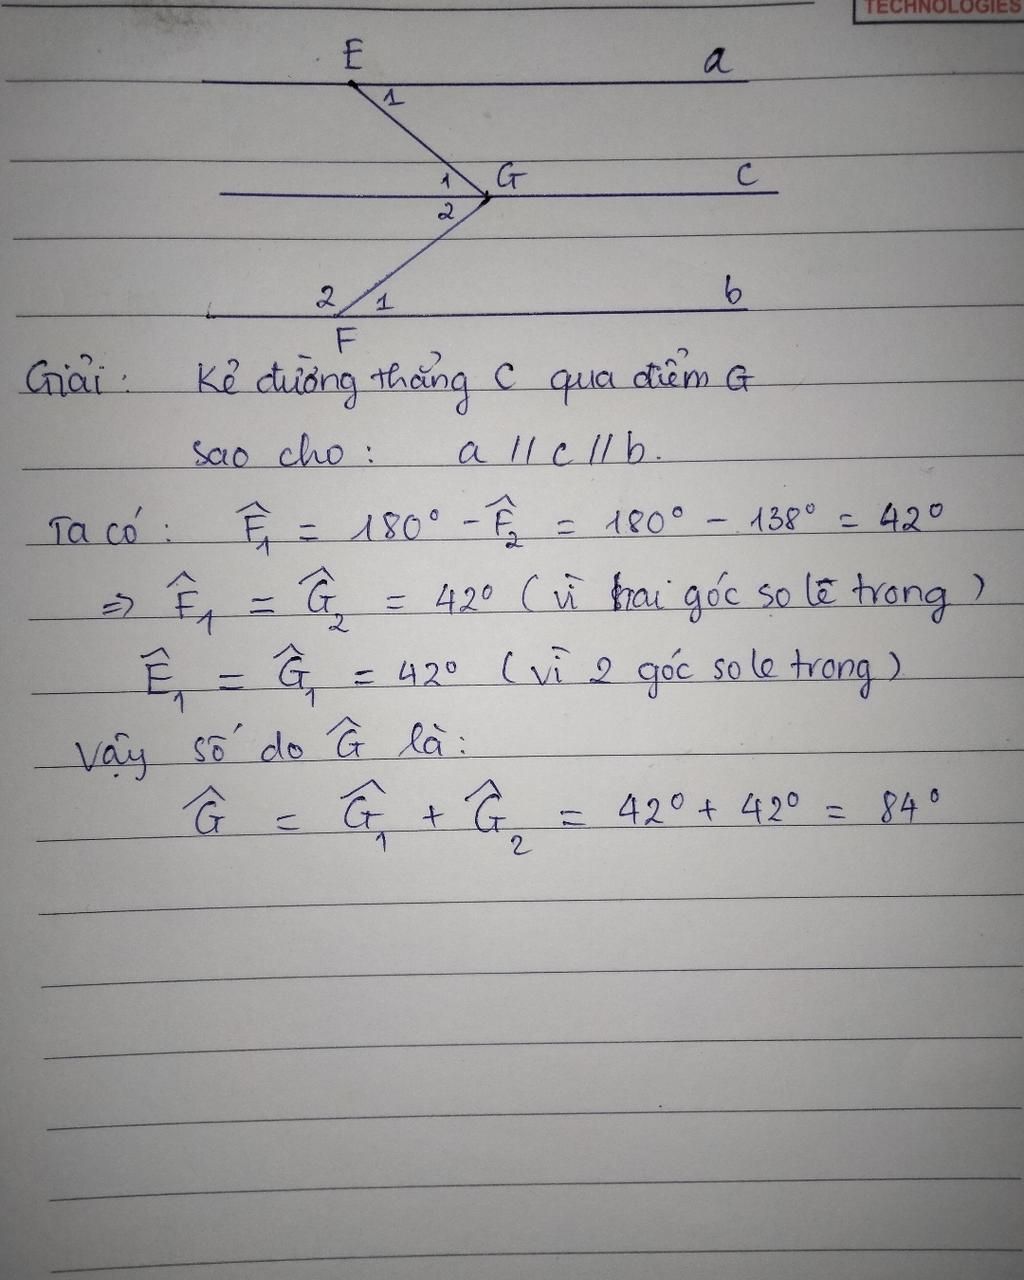 TECHNOLOGIES
E a
1
1 G C
2
2 1 b
F
Giải: Kẻ đường thẳng C qua điểm G
sao cho: a // c // b.
Ta có: F̂₁ = 180° - F̂₂ = 180° - 138° = 42°
=> F̂₁ = Ĝ₂ = 42° (vì hai góc so lē trong)
Ê₁ = Ĝ₁ = 42° (vì 2 góc so le trong)
Vậy số do Ĝ là:
Ĝ = Ĝ₁ + Ĝ₂ = 42° + 42° = 84°